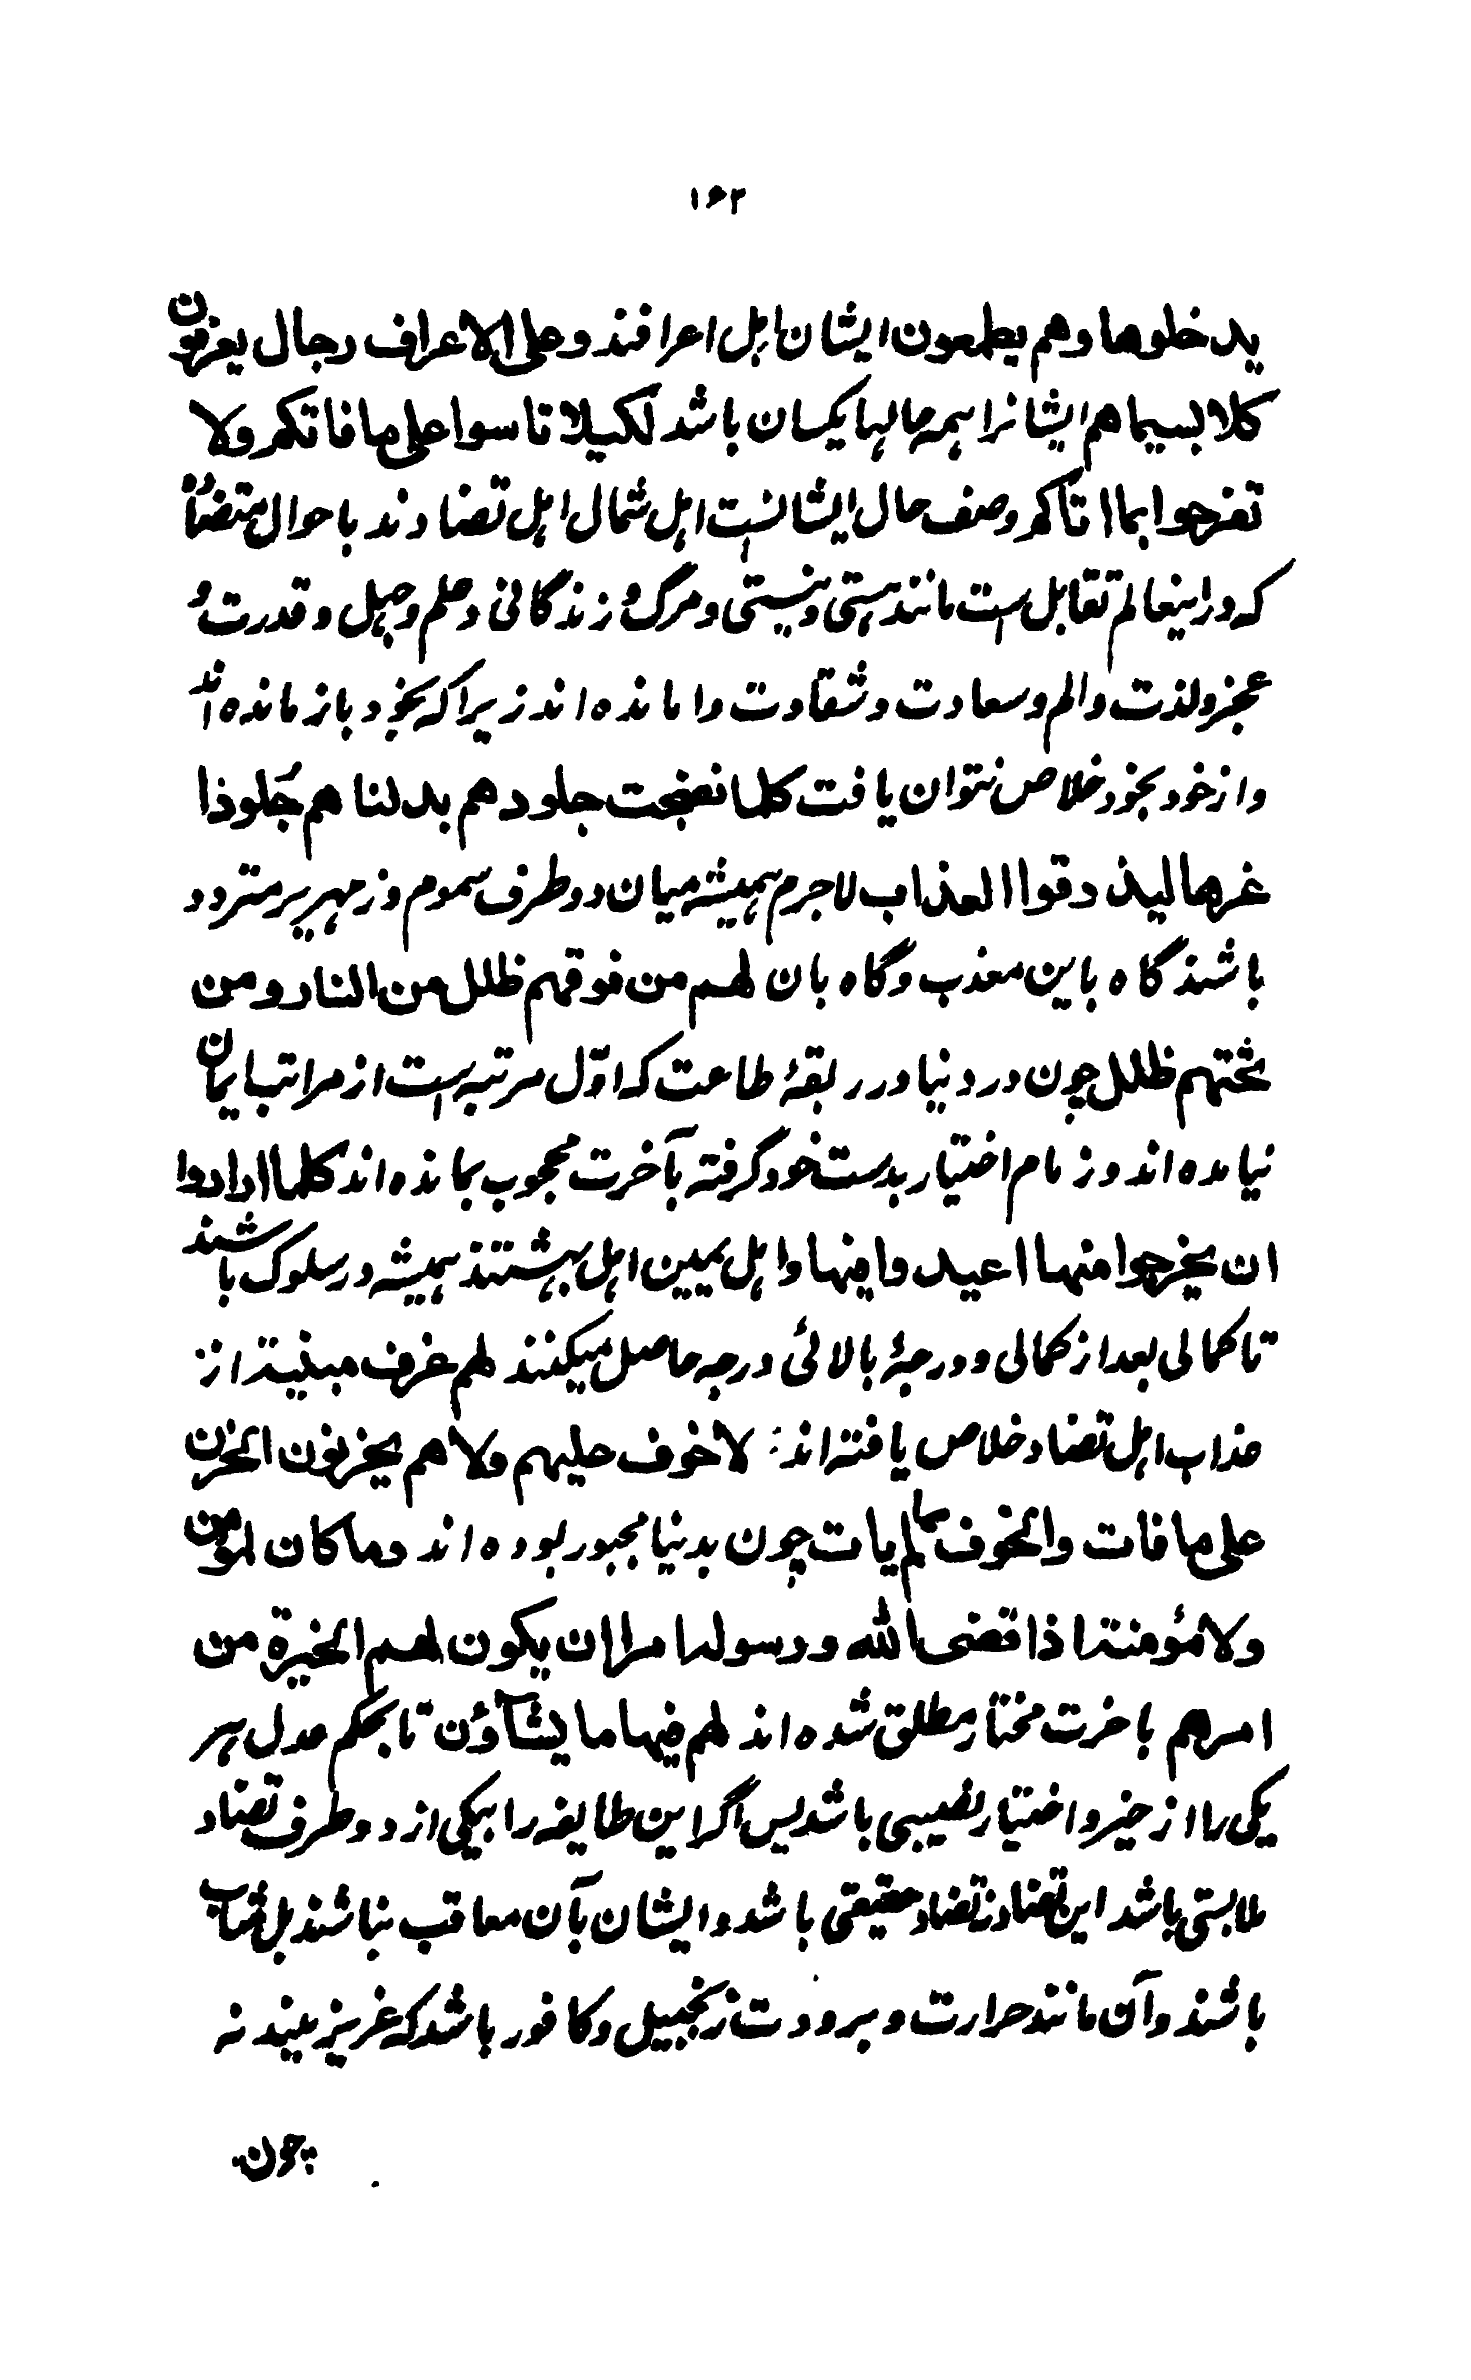 ۱۶۲
یدخلوها وهم یطمعون ایشان اهل اعرافند وعلی الاعراف رجال یعرفون
کلا بسیماهم ایشانرا همه حالها یکسان باشد لکیلا تاسوا علی ما فاتکم ولا
تفرحوا بما اتاکم وصف حال ایشانست اهل شمال اهل تضادند باحوال متضاد
که در اینعالم تقابل ست مانند هستی ونیستی ومرگ و زندگانی وعلم وجهل وقدرت و
عجز ولذت والم وسعادت وشقاوت وا مانده اند زیرا که بخود باز مانده اند
واز خود بخود خلاص نتوان یافت کلما نضجت جلودهم بدلناهم جلودا
غرها لیذ دقوا العذاب لاجرم همیشه میان دو طرف سموم وزمهریر متردد
باشند گاه باین معذب وگاه بان لهم من فوقهم ظلل من النار ومن
تحتهم ظلل چون در دنیا در ربقهٔ طاعت که اوّل مرتبه ست از مراتب ایمان
نیامده اند وزمام اختیار بدست خود گرفته بآخرت محجوب بمانده اند کلما ارادوا
ان یخرجوا منها اعیدوا فیها واهل یمین اهل بهشتند همیشه در سلوک باشند
تا کمالی بعد از کمالی ودرجهٔ بالائی درجه حاصل میکنند لهم غرف مبنیة از
عذاب اهل تضاد خلاص یافته اند: لا خوف علیهم ولا هم یحزنون الحزن
علی ما فات والخوف لما لم یات چون بدنیا مجبور بوده اند وما کان لمؤمن
ولا مؤمنة اذا قضی الله ورسوله امرا ان یکون لهم الخیرة من
امرهم باخرت مختار مطلق شده اند لهم فیها ما یشآؤن تا بحکم عدل هر
یکی را از خیر واختیار نصیبی باشد پس اگر این طایفه را بیکی از دو طرف تضاد
ملابستی باشد این تضاد نه تضاد حقیقی باشد وایشان بآن معاقب نباشند بل مثاب
باشند وآن مانند حرارت وبرودت زنجبیل وکافور باشد که غریزیند نه
چون